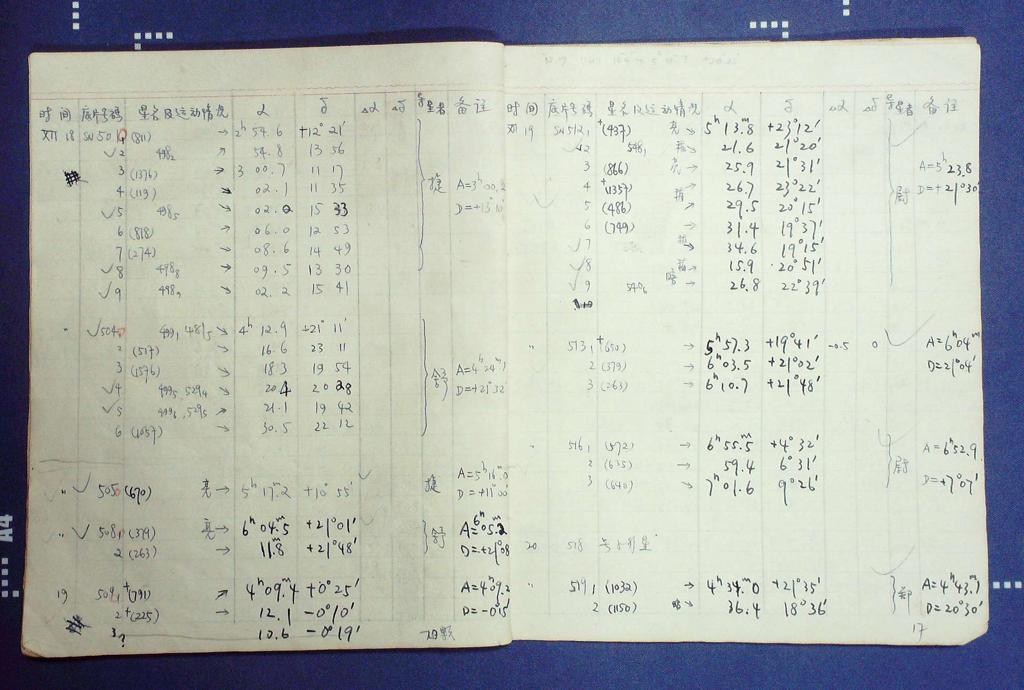 时间 底片号码 星名及运动情况 α δ Δα Δδ 导星者 备注
XII 18 SN501 (811) → 2h 54.6 +12° 21'
√2 498₂ → 54.8 13 56
3 (1376) ↗ 3 00.7 11 17 捷 A=3h00.2
4 (119) → 02.1 11 35 D=+13°10'
√5 498₅ → 02.2 15 33
6 (818) → 06.0 12 53
7 (274) → 08.6 14 49
√8 498₈ → 09.5 13 30
√9 498₉ → 02.2 15 41
" √504 499₁ 481₅ → 4h 12.9 +21° 11'
2 (517) → 16.6 23 11
3 (1576) → 18.3 19 54 舒 A=4h24m
√4 499₅, 529₄ → 20.4 20 28 D=+21°32'
√5 499₆, 529₅ → 21.1 19 42
6 (1057) → 30.5 22 12
" √ 505 (670) 亮→ 5h 17m.2 +10° 55' 捷 A=5h16m.0
D=+11°00'
" √ 508₁ (379) 亮→ 6h 04m.5 +21°01' 舒 A=6h05.2
2 (263) → 11.8 +21°48' D=+21°08'
19 509₁ +(791) ↗ 4h 09m.4 +0° 25' A=4h09.2
2 +(225) → 12.1 -0°10' D=-0°15'
3? 10.6 -0°19'
时间 底片号码 星名及运动情况 α δ Δα Δδ 导星者 备注
XII 19 SN512₁ +(437) 亮→ 5h 13m.8 +23°12'
√2 548₁ → 21.6 21°20'
3 (866) 亮→ 25.9 21°31' A=5h23.8
4 +(1357) → 26.7 23°22' 尉 D=+21°30'
√5 (486) ↗ 29.5 20°15'
6 (749) → 31.4 19°37'
√7 → 34.6 19°15'
√8 → 15.9 20°51'
√9 540₆ 暗→ 26.8 22°39'
" 513₁ +(650) → 5h 57.3 +19°41' -0.5 0 A=6h04m
2 (379) → 6h03.5 +21°02' D=21°04'
3 (263) → 6h10.7 +21°48'
" 516₁ (572) → 6h55m.5 +4°32' A=6h52.9
2 (635) → 59.4 6°31' 尉
3 (640) → 7h01.6 9°26' D=+7°07'
20 518
" 519₁ (1032) → 4h34m.0 +21°35' 郑 A=4h43m.1
2 (1150) 暗→ 36.4 18°36' D=20°30'
17